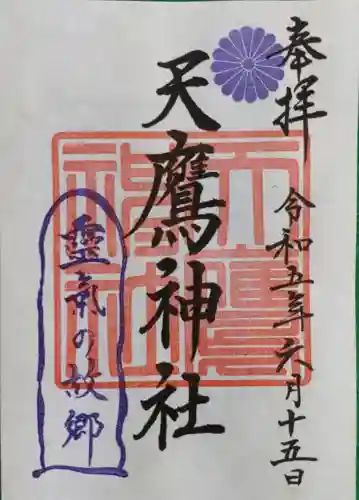 奉拝
令和五年六月十五日
天鷹神社
天鷹神社
靈氣の故郷